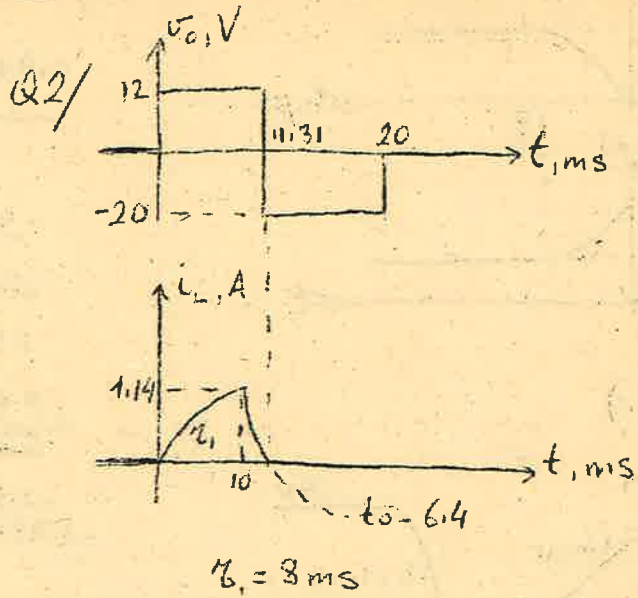 Q2/
v₀, V
12
11.31
20
t, ms
-20
i_L, A
1.14
τ₁
10
t, ms
to - 6.4
τ₁ = 8 ms